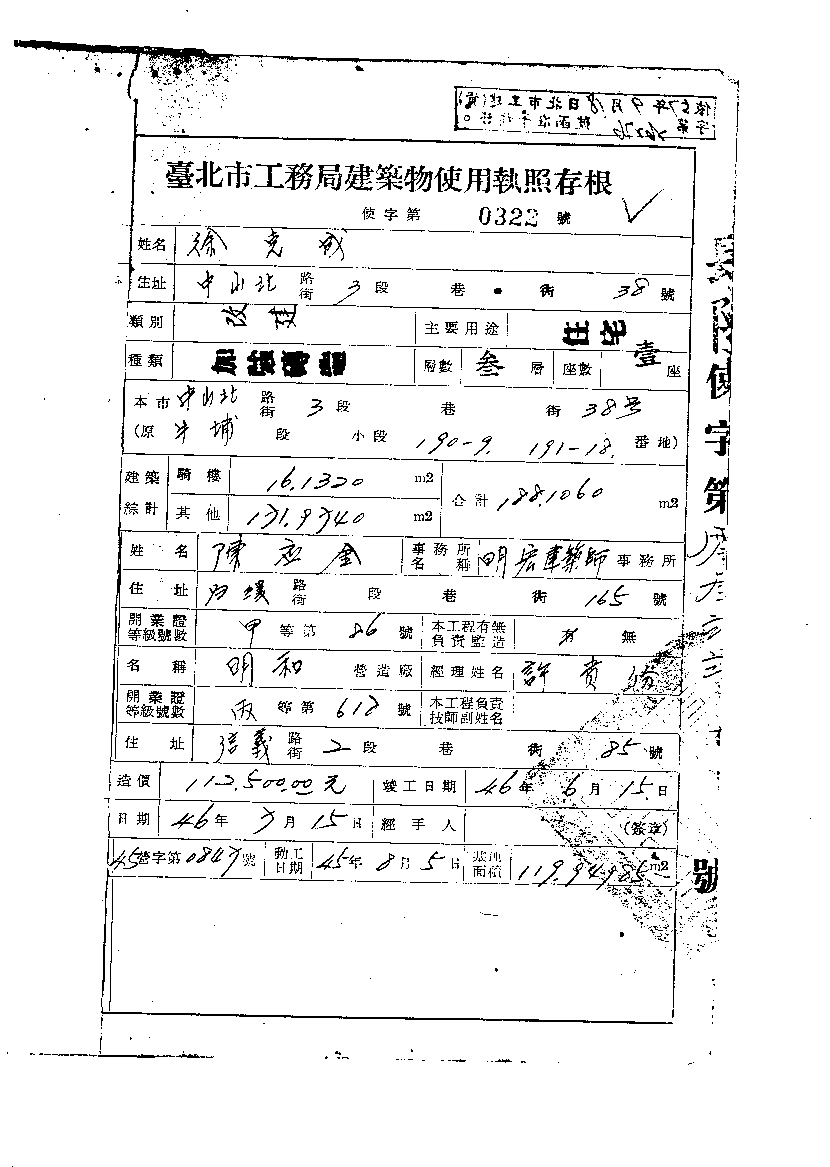 臺北市工務局建築物使用執照存根
使字第 0322 號
姓名 徐克成
住址 中山北路街 3段 巷 街 38 號
類別 改建 主要用途 住宅
種類 加強磚造 層數 叁層 座數 壹座
本市 中山北路街 3段 巷 街 38号
(原 牛埔 段 小段 190-9. 191-18. 番地)
建築綜計 騎樓 16.1320 m2 合計 188.1060 m2
其他 m2
姓名 陳 金 事務所名稱 明宏建築師事務所
住址 路街 段 巷 街 165 號
開業證等級號數 甲等第 86 號 本工程有無負責監造 有 無
名稱 明和 營造廠 經理姓名 許貴
開業證等級號數 丙等第 618 號 本工程負責技師副姓名
住址 信義路街 2段 巷 街 85 號
造價 112,500.00元 竣工日期 46年 6月 15日
日期 46年 7月 15日 經手人 (簽章)
45營字第0847號 動工日期 45年 8月 5日 基地面積 119.94985 m2
使字第
號